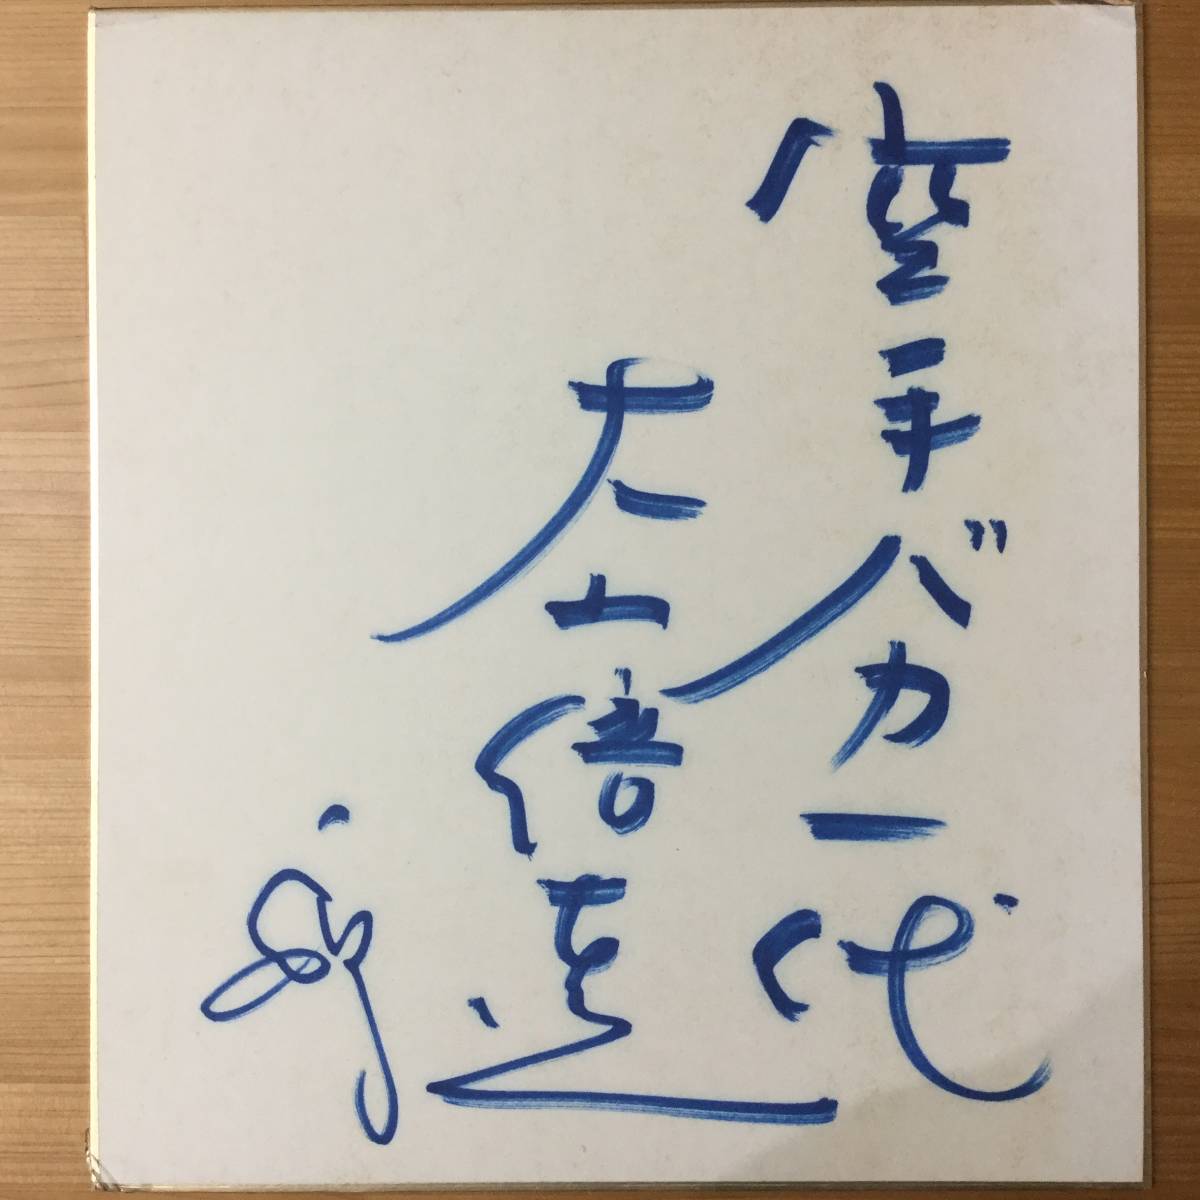 空手バカ一代
大山倍達